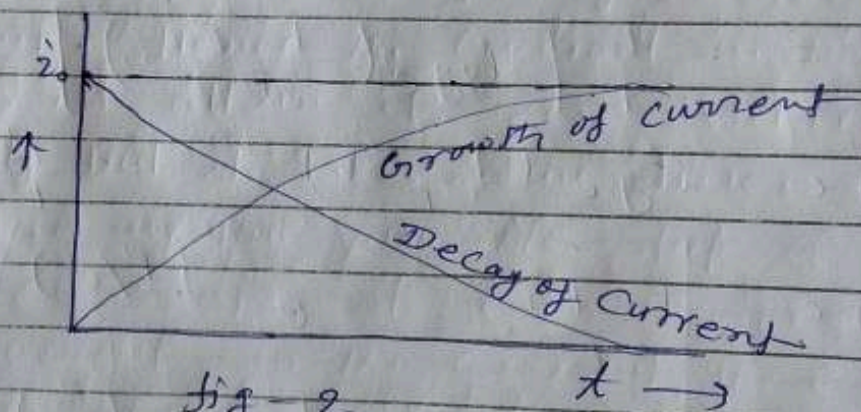 i₀
↑
Growth of current
Decay of Current
t →
fig - 2